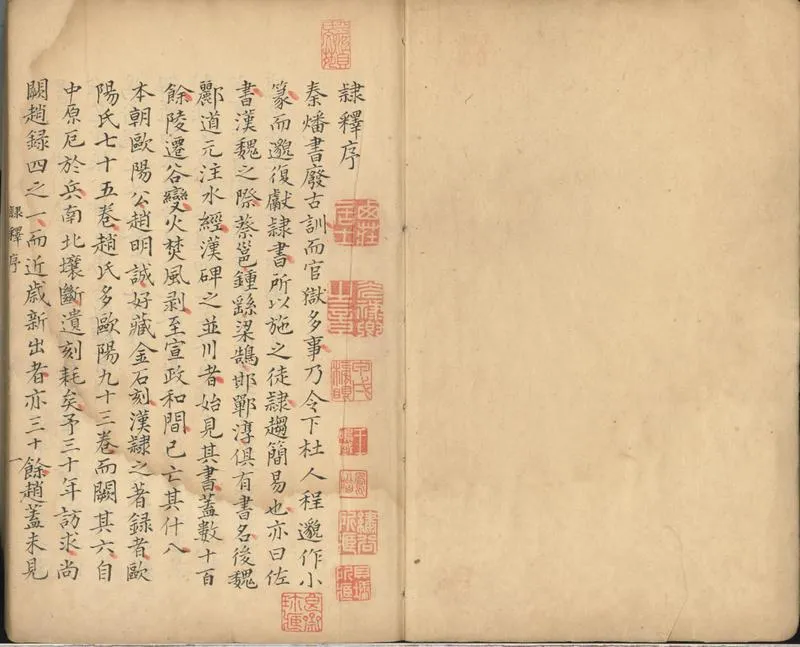 隸釋序
秦燔書廢古訓而官獄多事乃令下杜人程邈作小
篆而邈復獻隸書所以施之徒隸趨簡易也亦曰佐
書漢魏之際蔡邕鍾繇梁鵠邯鄲淳俱有書名後魏
酈道元注水經漢碑之並川者始見其書蓋數十百
餘陵遷谷變火焚風剥至宣政和間已亡其什八
本朝歐陽公趙明誠好藏金石刻漢隸之著録者歐
陽氏七十五卷趙氏多歐陽九十三卷而闕其六自
中原厄於兵南北壤斷遺刻耗矣予三十年訪求尚
闕趙録四之一而近歲新出者亦三十餘趙蓋未見
隸釋序
一